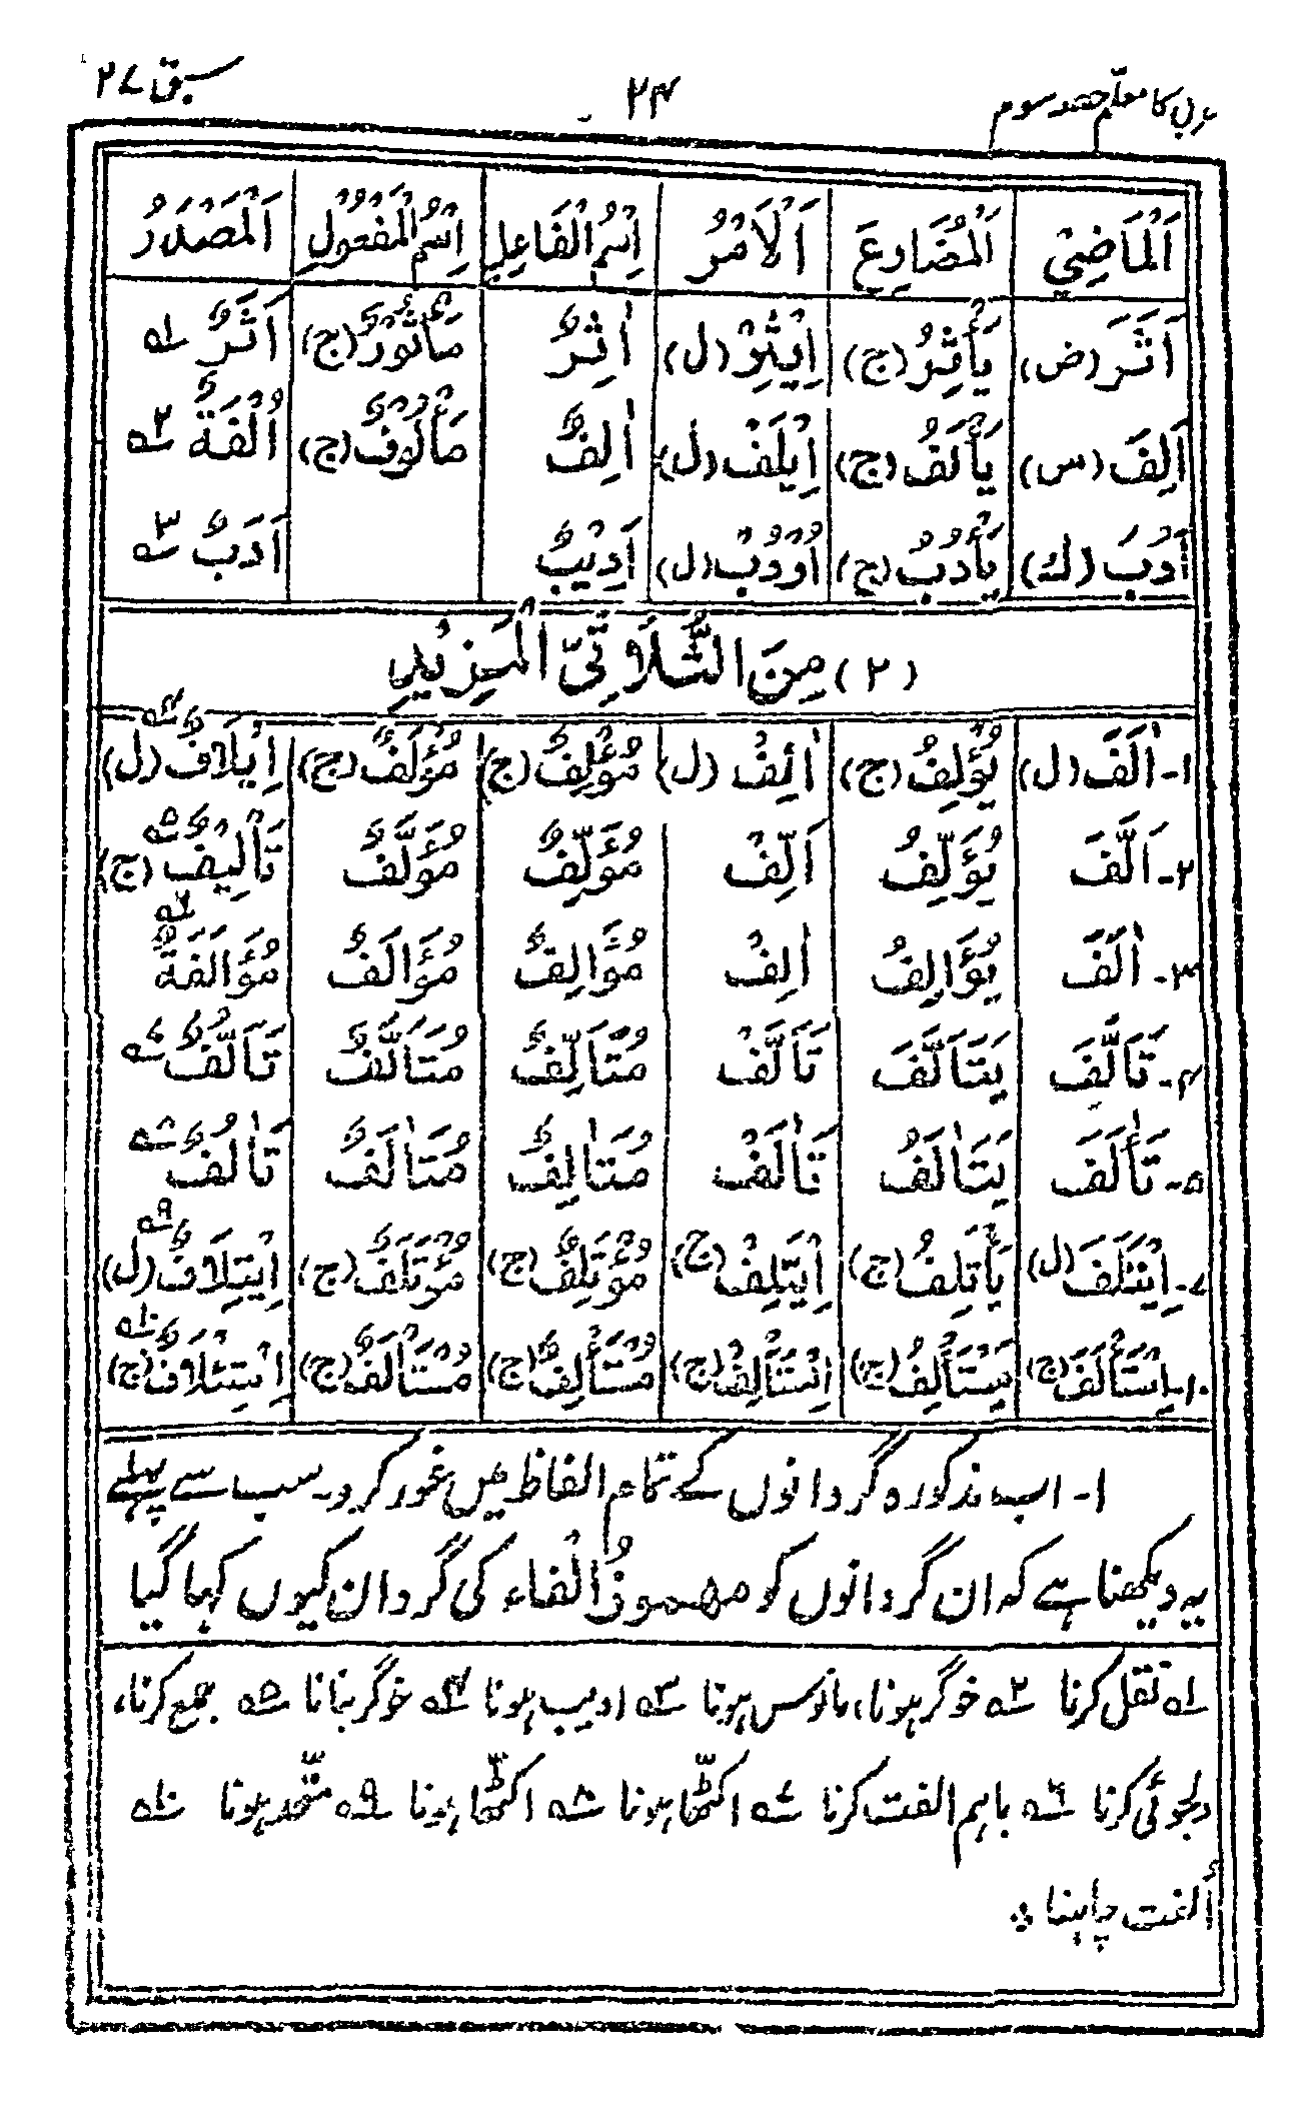 عربی کا معلّم حصہ سوم ۲۴ سبق ۲۷
اَلْمَاضِيْ اَلْمُضَارِعُ اَلْاَمْرُ اِسْمُ الْفَاعِلِ اِسْمُ الْمَفْعُوْلِ اَلْمَصْدَرُ
اَثَرَ (ض) يَأْثِرُ (ج) اِيْثِرْ (ل) اٰثِرٌ مَأْثُوْرٌ (ج) اَثَرٌ ۱ـه
اَلِفَ (س) يَأْلَفُ (ج) اِيْلَفْ (ل) اٰلِفٌ مَأْلُوْفٌ (ج) اُلْفَةٌ ۲ـه
اَدُبَ (ك) يَأْدُبُ (ج) اُوْدُبْ (ل) اَدِيْبٌ اَدَبٌ ۳ـه
(۲) مِنَ الثُّلَاثِيِّ الْمَزِيْدِ
۱- اٰلَفَ (ل) يُؤْلِفُ (ج) اٰلِفْ (ل) مُؤْلِفٌ (ج) مُؤْلَفٌ (ج) اِيْلَافٌ (ل) ۴ـه
۲- اَلَّفَ يُؤَلِّفُ اَلِّفْ مُؤَلِّفٌ مُؤَلَّفٌ تَأْلِيْفٌ (ج) ۵ـه
۳- اٰلَفَ يُؤَالِفُ اٰلِفْ مُؤَالِفٌ مُؤَالَفٌ مُؤَالَفَةٌ ۶ـه
۴- تَاَلَّفَ يَتَاَلَّفَ تَاَلَّفْ مُتَاَلِّفٌ مُتَاَلَّفٌ تَاَلُّفٌ ۷ـه
۵- تَاٰلَفَ يَتَاٰلَفُ تَاٰلَفْ مُتَاٰلِفٌ مُتَاٰلَفٌ تَاٰلُفٌ ۸ـه
۷- اِيْتَلَفَ (ل) يَأْتَلِفُ (ج) اِيْتَلِفْ (ج) مُؤْتَلِفٌ (ج) مُؤْتَلَفٌ (ج) اِيْتِلَافٌ (ل) ۹ـه
۱۰- اِسْتَأْلَفَ (ج) يَسْتَأْلِفُ (ج) اِسْتَأْلِفْ (ج) مُسْتَأْلِفٌ (ج) مُسْتَأْلَفٌ (ج) اِسْتِئْلَافٌ (ج) ۱۰ـه
۱- اب مذکورہ گردانوں کے تمام الفاظ میں غور کرو۔ سب سے پہلے
یہ دیکھنا ہے کہ ان گردانوں کو مہموزُ الْفاء کی گردان کیوں کہا گیا
۱ـه نقل کرنا ۲ـه خوگر ہونا، مانوس ہونا ۳ـه ادیب ہونا ۴ـه خوگر بنانا ۵ـه جمع کرنا،
دلجوئی کرنا ۶ـه باہم الفت کرنا ۷ـه اکٹھّا ہونا ۸ـه اکٹھّا ہونا ۹ـه متّحد ہونا ۱۰ـه
اُلفت چاہنا ٭